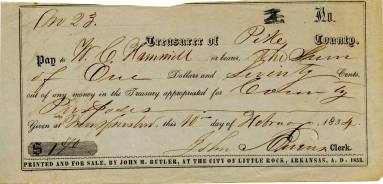 No 23. No.
Treasurer of Pike County.
Pay to W. C. Hammill or bearer, The Sum
of One Dollars and Seventy Cents,
out of any money in the Treasury appropriated for County
Purposes
Given at this 10th day of February 1854
$1 70 John Owens Clerk.
PRINTED AND FOR SALE, BY JOHN H. BUTLER, AT THE CITY OF LITTLE ROCK, ARKANSAS, A. D. 1853.